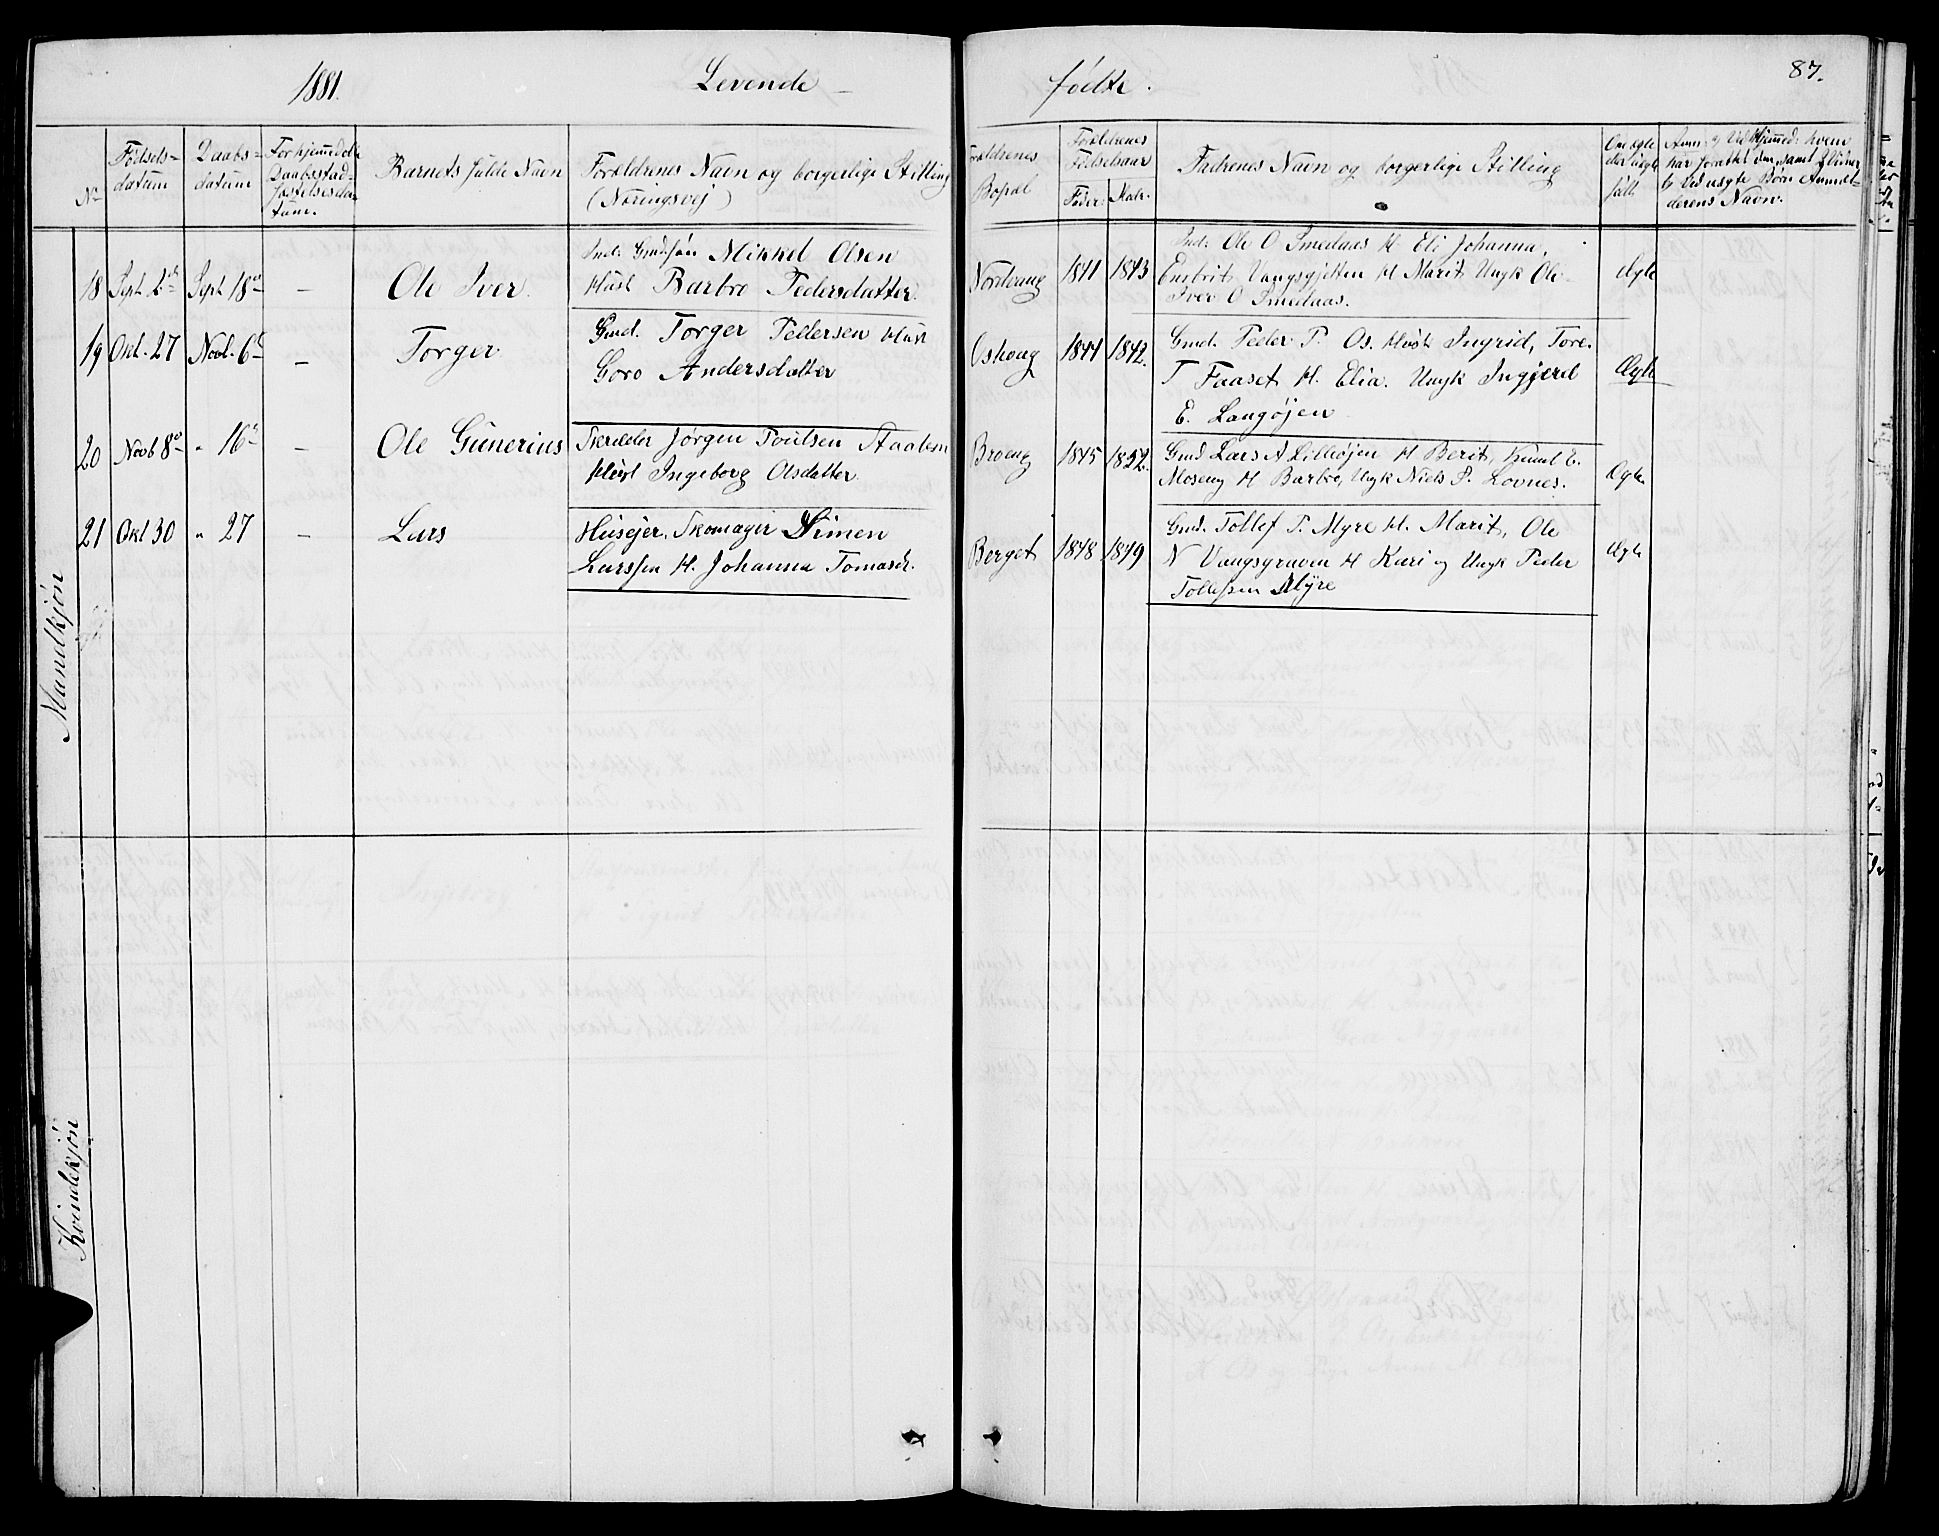 1881. Levende
fødte. 87.
No
Fødsels-
datum
Daabs-
datum
Barnets fulde Navn
Forældrenes Navn og borgerlige Stilling
(Næringsvej)
Forældrenes
Bopæl
Forældrenes
Fødselsaar
Fader. Mode.
Fadrenes Navn og borgerlige Stilling
Mandkjøn
18 Sept. 2 Sept 18 – Ole Iver.
Mikkel Olsen
Hust Barbro Pedersdatter.
Nordvang 1841 1843
Ole O Smedaas H Eli Johanna,
Vangsgjelten H Marit Ungk Ole
Iver O Smedaas.
Ægte
19 Okt. 27 Novb. 6 – Torger
Gmd. Torger Pedersen Hust
Goro Andersdatter
Oshoug 1841 1842.
Gmd. Peder P. Os. Hust Ingrid, Tore
T Faaset H. Elia. Ungk Ingjerd
E. Langøjen
Ægte
20 Novb 8 " 16 – Ole Gunerius
Skræder Jørgen Poulsen Staalem
Hust Ingeborg Olsdatter
Broeng 1845 1852.
Gmd Lars A Lilleøjen H Berit, Knut E.
Moseng H Barbro, Ungk Niels P. Lovnes.
Ægte
21 Okt 30 " 27 – Lars
Husejer, Skomager Simen
Larssen H. Johanna Tomasd.
Berget 1848 1849
Gmd. Tollef P. Myre H. Marit, Ole
N Vangsgraven H Kari og Ungk Peder
Tollefsen Myre
Ægte
Kvindekjøn